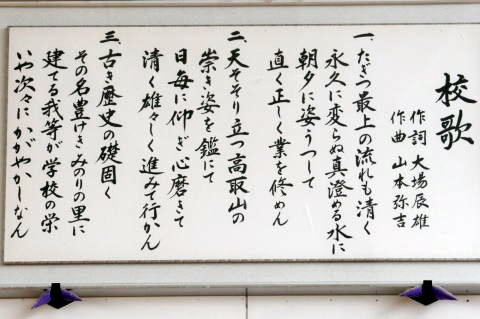 校歌
作詞 大場辰雄
作曲 山本弥吉
一、たぎつ最上の流れも清く
永久に変らぬ真澄める水に
朝夕に姿うつして
直く正しく業を修めん
二、天そそり立つ高取山の
崇き姿を鑑にて
日毎に仰ぎ心磨きて
清く雄々しく進みて行かん
三、古き歴史の礎固く
その名豊けきみのりの里に
建てる我等が学校の栄
いや次々にかがやかしなん